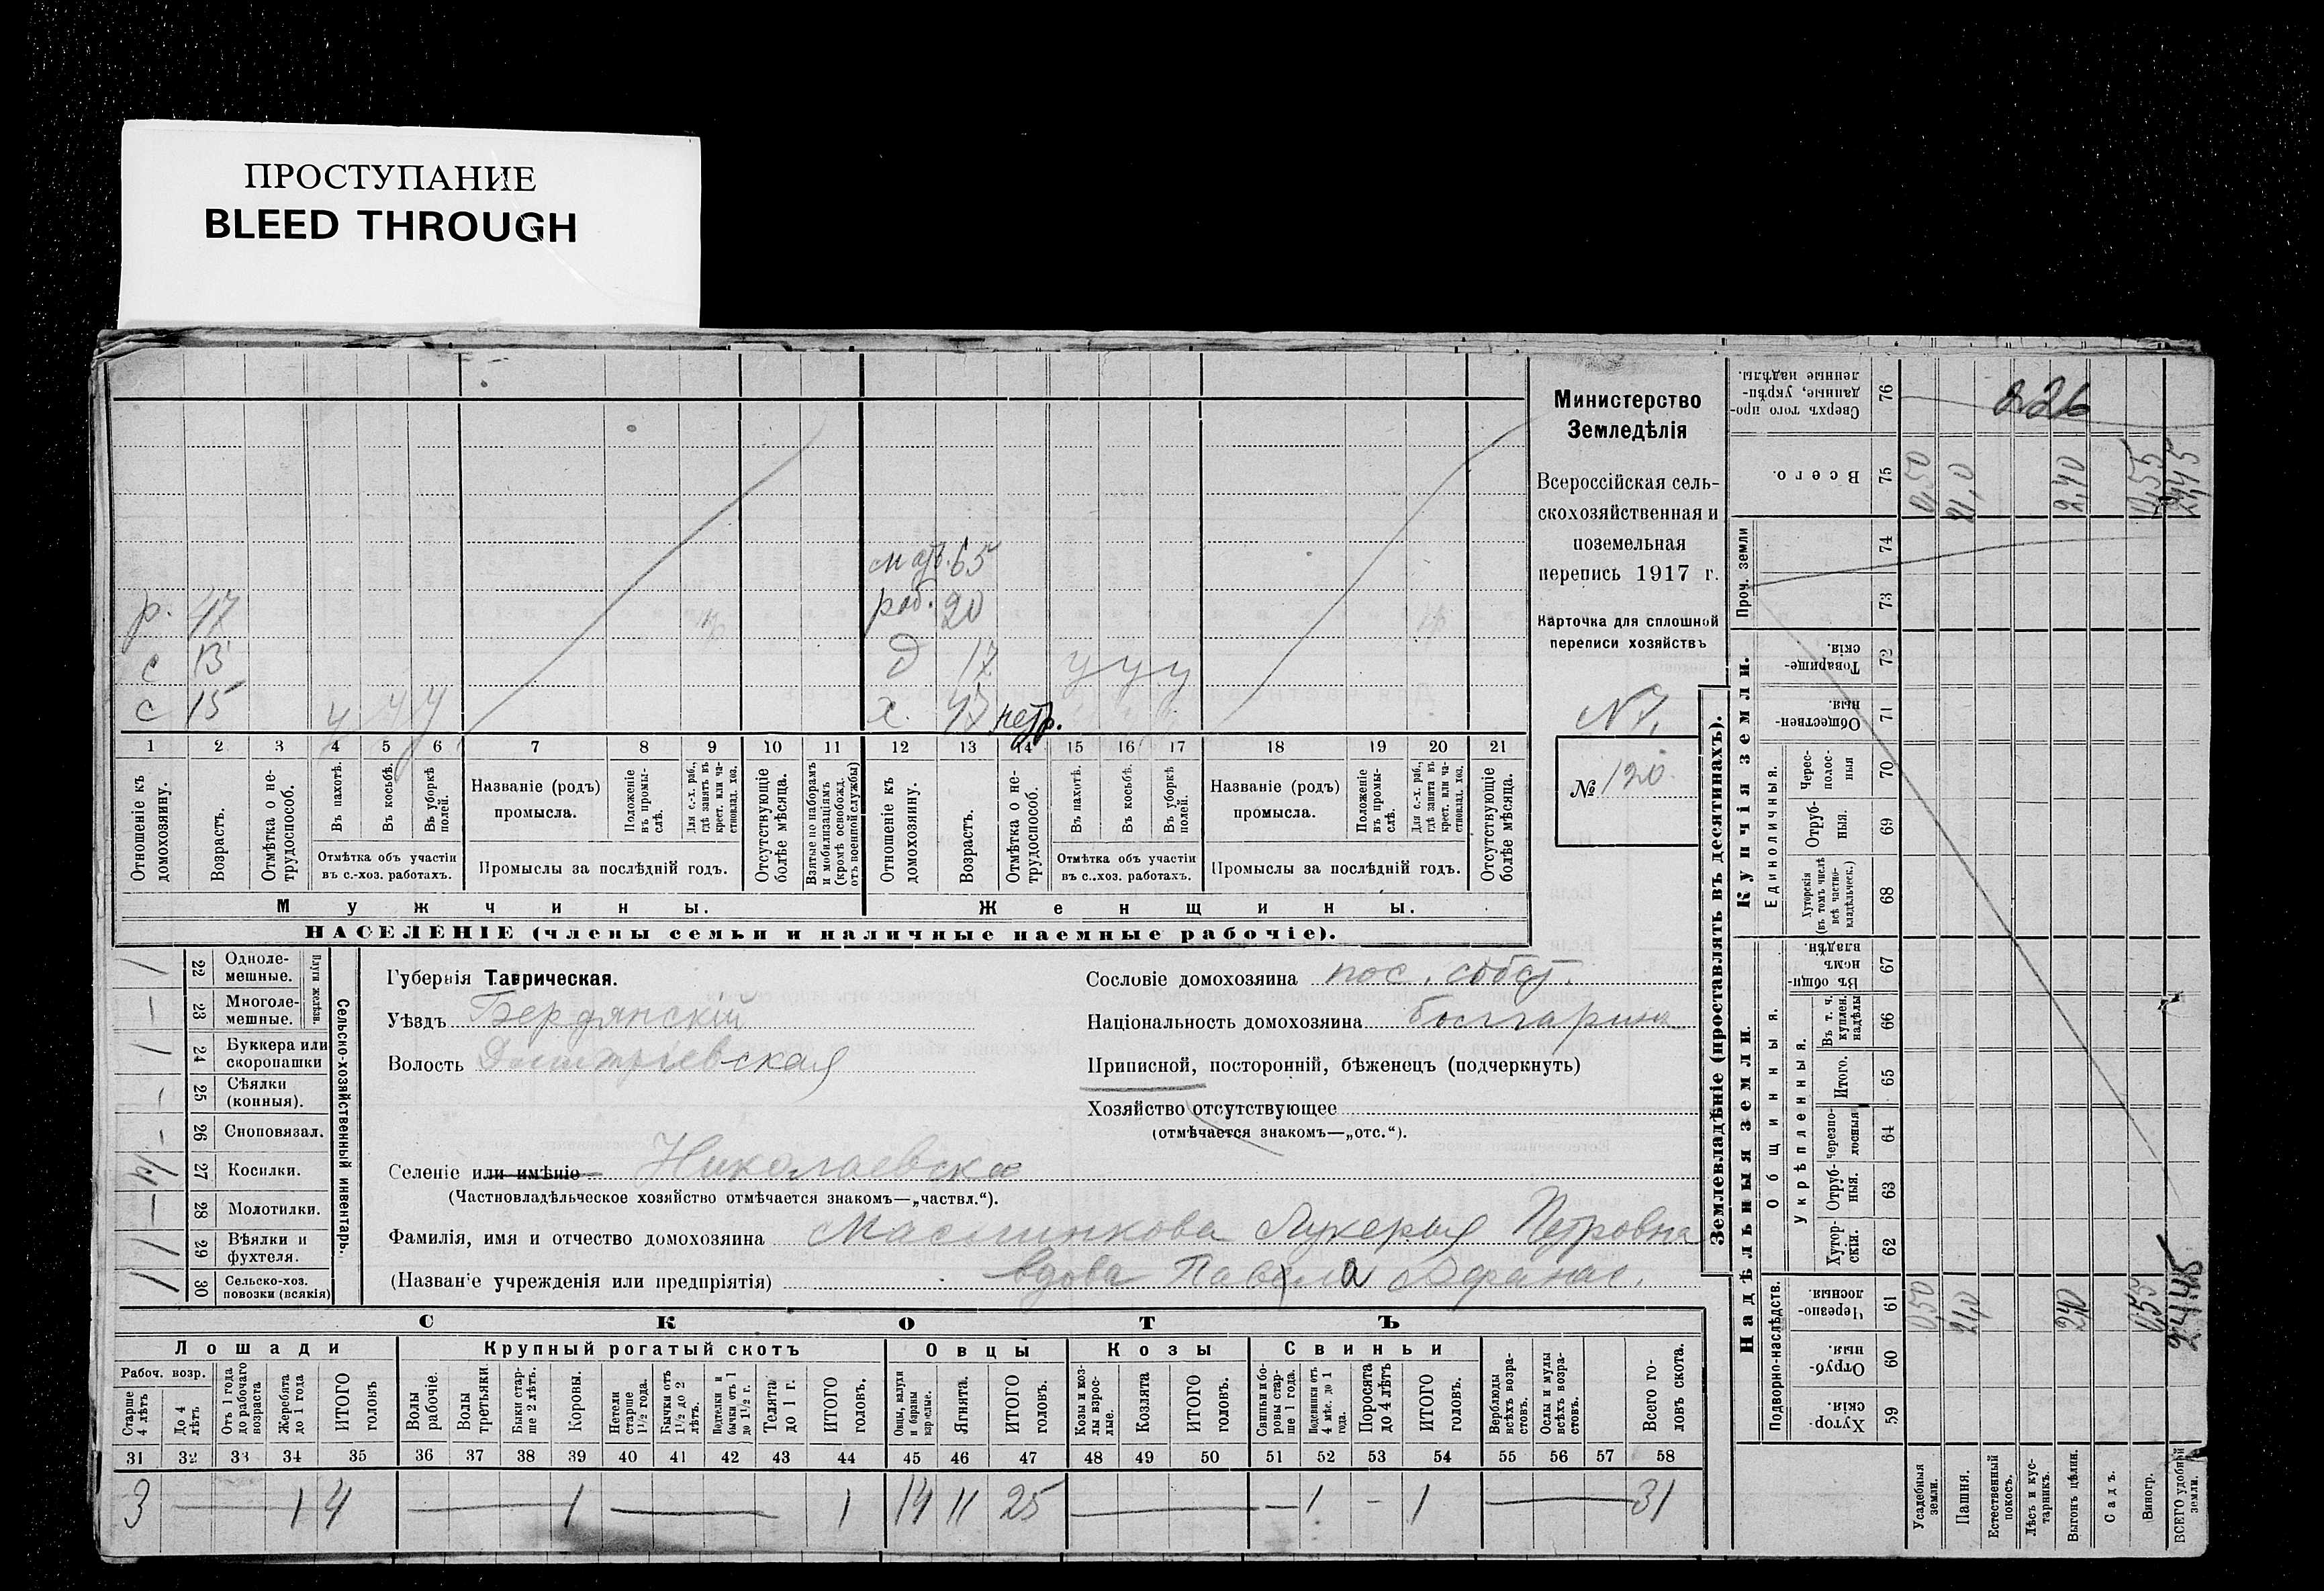 ПРОСТУПАНИЕ
BLEED THROUGH
мат. 65
р. 47 раб. 20
с 13 д 17 у у у
с 15 у у у х. 47 нетр.
1 2 3 4 5 6 7 8 9 10 11 12 13 14 15 16 17 18 19 20 21
Отношеніе къ домохозяину.
Возрастъ.
Отмѣтка о не-трудоспособ.
Въ пахотѣ.
Въ косьбѣ.
Въ уборкѣ полей.
Отмѣтка объ участіи
въ с.-хоз. работахъ.
Названіе (родъ)
промысла.
Положеніе въ промы-слѣ.
Для с.-х. раб., гдѣ занятъ въ крест. или ча-стновлад. хоз.
Промыслы за послѣдній годъ.
Отсутствующіе болѣе мѣсяца.
Взятые по наборамъ и мобилизаціямъ (кромѣ освобожд. отъ военной службы)
Отношеніе къ домохозяину.
Возрастъ.
Отмѣтка о не-трудоспособ.
Въ пахотѣ.
Въ косьбѣ.
Въ уборкѣ полей.
Отмѣтка объ участіи
въ с.-хоз. работахъ.
Названіе (родъ)
промысла.
Положеніе въ промы-слѣ.
Для с.-х. раб., гдѣ занята въ крест. или ча-стновлад. хоз.
Промыслы за послѣдній годъ.
Отсутствующіе болѣе мѣсяца.
Мужчины. Женщины.
НАСЕЛЕНІЕ (члены семьи и наличные наемные рабочіе).
Министерство
Земледѣлія
Всероссійская сель-
скохозяйственная и
поземельная
перепись 1917 г.
Карточка для сплошной
переписи хозяйствъ
№ 120
Сельско-хозяйственный инвентарь.
Плуги желѣзн.
/ 22 Одноле-мешные.
— 23 Многоле-мешные.
/ 24 Буккера или скоропашки
- 25 Сѣялки (конныя).
- 26 Сноповязал.
27 Косилки.
— 28 Молотилки.
/ 29 Вѣялки и фухтеля.
/ 30 Сельско-хоз. повозки (всякія)
Губернія Таврическая.
Уѣздъ Бердянскій
Волость Дмитріевская
Селеніе или имѣніе Николаевка
(Частновладѣльческое хозяйство отмѣчается знакомъ—„частвл.“).
Фамилія, имя и отчество домохозяина Маслинкова Лукерья Петровна
(Названіе учрежденія или предпріятія) вдова Павла Афанас.
Сословіе домохозяина пос. собст.
Національность домохозяина болгарин
Приписной, посторонній, бѣженецъ (подчеркнуть)
Хозяйство отсутствующее
(отмѣчается знакомъ—„отс.“).
СКОТЪ
Лошади Крупный рогатый скотъ Овцы Козы Свиньи
Рабоч. возр.
Старше 4 лѣтъ
До 4 лѣтъ
Отъ 1 года до рабочаго возраста
Жеребята до 1 года
ИТОГО головъ
Волы рабочіе.
Волы третьяки
Быки стар-ше 2 лѣтъ.
Коровы.
Нетели старше 1½ года.
Бычки отъ 1½ до 2 лѣтъ.
Подтелки и бычки отъ 1 до 1½ г.
Телята до 1 г.
ИТОГО головъ.
Овцы, валухи и бараны взрослые.
Ягнята.
ИТОГО головъ.
Козы и коз-лы взрос-лые.
Козлята
ИТОГО головъ.
Свиньи и бо-ровы стар-ше 1 года.
Подсвинки отъ 4 мѣс. до 1 года.
Поросята до 4 лѣтъ
ИТОГО головъ.
Верблюды всѣхъ возра-стовъ.
Ослы и мулы всѣхъ возра-стовъ.
Всего го-ловъ скота.
31 32 33 34 35 36 37 38 39 40 41 42 43 44 45 46 47 48 49 50 51 52 53 54 55 56 57 58
3 — 1 4 — 1 — 1 14 11 25 — — 1 - 1 — 31
Землевладѣніе (проставлять въ десятинахъ).
Сверхъ того про-данные, укрѣп-ленные надѣлы. 76 226
Всего. 75 0,50 21,0 2,40 0,55 24,45
Купчія земли.
Проч. земли 74
73
Товарище-скія. 72
Обществен-ныя. 71
Единоличныя.
Черес-полос-ныя 70
Отруб-ныя. 69
Хуторскія (въ томъ числѣ всѣ частно-владѣльческ.) 68
Надѣльныя земли.
Общинныя.
Въ общин-номъ владѣн. 67
Укрѣпленныя.
Въ т. ч. куплен. надѣлы 66
Итого. 65
Черезпо-лосныя 64
Отруб-ныя. 63
Хутор-скія. 62
Подворно-наслѣдств.
Черезпо-лосныя. 61 0,50 21,0 2,40 0,55 24,45
Отруб-ныя. 60
Хутор-скія. 59
Усадебныя земли.
Пашня.
Естественный покосъ.
Лѣсъ и кус-тарникъ.
Выгонъ цѣлин.
Садъ.
Виногр.
ВСЕГО удобной земли.